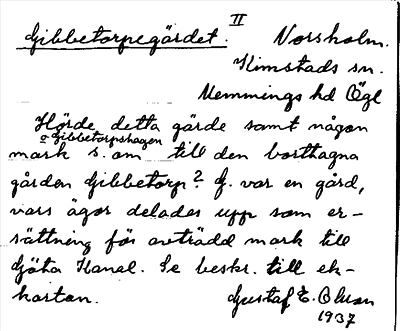 II
Gibbetorpegärdet. Norsholm.
Kimstads sn.
Memmings hd Ögl
Hörde detta gärde samt någon
o Gibbetorpshagen
mark s. om till den borttagna
gården Gibbetorp? G. var en gård,
vars ägor delades upp som er-
sättning för avträdd mark till
Göta Kanal. Se beskr. till ek-
kartan. Gustaf E. Olson
1937